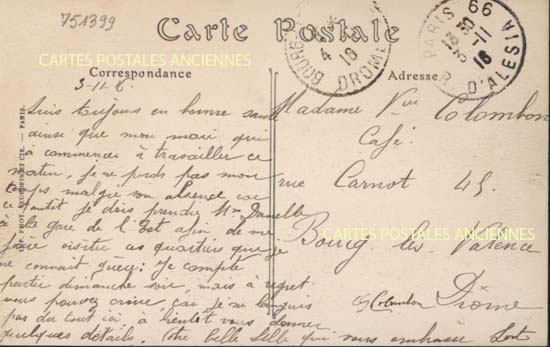 751399
Carte Postale
CARTES POSTALES ANCIENNES
Correspondance
Adresse
BOURG
4
16
DROME
PARIS 99
11
16
R. D'ALESIA
3-11-6.
Suis toujours en bonne santé
ainsi que mon mari qui
a commencer à travailler ce
matin, je ne perds pas mon
temps malgré son absence car
cet je dois prendre Mme
à la gare de l'Est afin de me
faire visiter un quartier que je
ne connait guère; Je compte
partir dimanche soir, mais à regret
vous pouvez croire, car je ne languis
pas du tout ici, à bientôt vous donner
quelques détails. Votre belle fille qui vous embrasse
Madame Vve Colombon
Café
rue Carnot 45.
CARTES POSTALES ANCIENNES
Bourg les Valence
Colombon
Drôme
PARIS